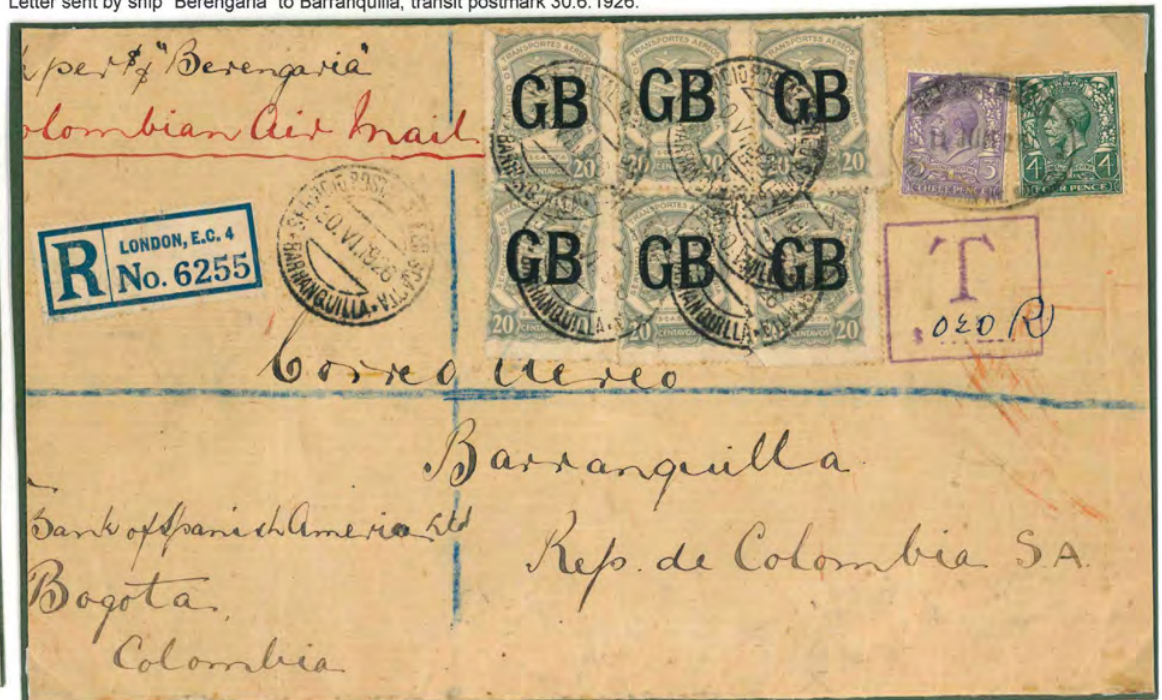 Letter sent by ship "Berengaria" to Barranquilla, transit postmark 30.6.1926.
per "Berengaria"
olombian Air Mail
R LONDON, E.C. 4
No. 6255
SERVICIO POSTAL
30.VI.1926
BARRANQUILLA
TRANSPORTES AEREOS
GB GB GB
20 20 20
GB GB GB
20 CENTAVOS 20 CENTAVOS CENTAVOS 20
THREE PENCE
4 FOUR PENCE 4
T
$ 020 R
Correo Aereo
Barranquilla
Rep. de Colombia S.A.
Bank of Spanish America Ltd
Bogota
Colombia